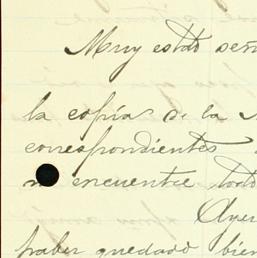 Muy estdo señ
la copias de la
correspondientes
encuentre todo
Ayer
haber quedado bien